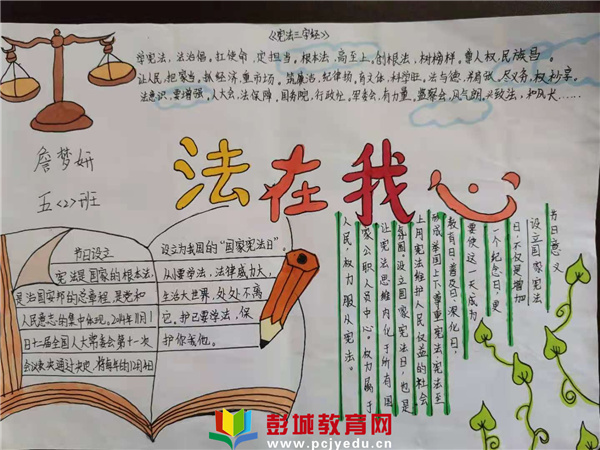 《宪法三字经》
举宪法，法治倡。扛使命，定担当。根本法，高至上。创根法，树榜样。尊人权，民族昌。
让人民，把家当。抓经济，重市场。筑廉洁，纪律扬。有文体，科学旺。法与德，并肩张。尽义务，权利享。
法意识，要增强。人大会，法保障。国务院，行政忙。军委会，有力量。监察会，风气朗。兴致法，和风长……
詹梦妍
五<2>班
法在我心
节日设立
宪法是国家的根本法，
是治国安邦的总章程，是党和
人民意志的集中体现。2014年11月1
日十一届全国人大常委会第十一次
会议表决通过决定，将每年的12月4日
设立为我国的“国家宪法日”。
从小要学法，法律威力大，
生活大世界，处处不离
它。护己要学法，保
护你我他。
节日意义
设立国家宪法
日，不仅是增加
一个纪念日，更
要使这一天成为
教育日、普及日、深化日，
形成举国上下尊重宪法、宪法至
上、用宪法维护人民权益的社会
氛围。设立国家宪法日，也是
让宪法思维内化于所有国
家公职人员中心。权力属于
人民，权力服从宪法。
彭城教育网
www.pcjyedu.cn